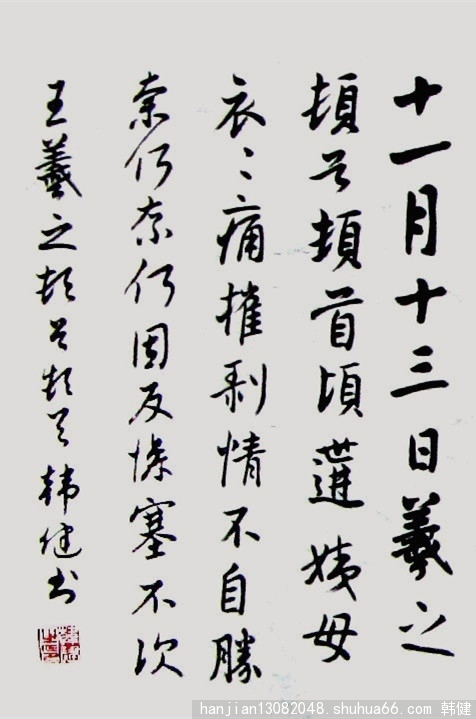 十一月十三日羲之
頓首頓首頃遘姨母
哀〻痛摧剥情不自勝
奈何奈何因反慘塞不次
王羲之頓首頓首 韩健书
hanjian13082048.shuhua66.com 韩健